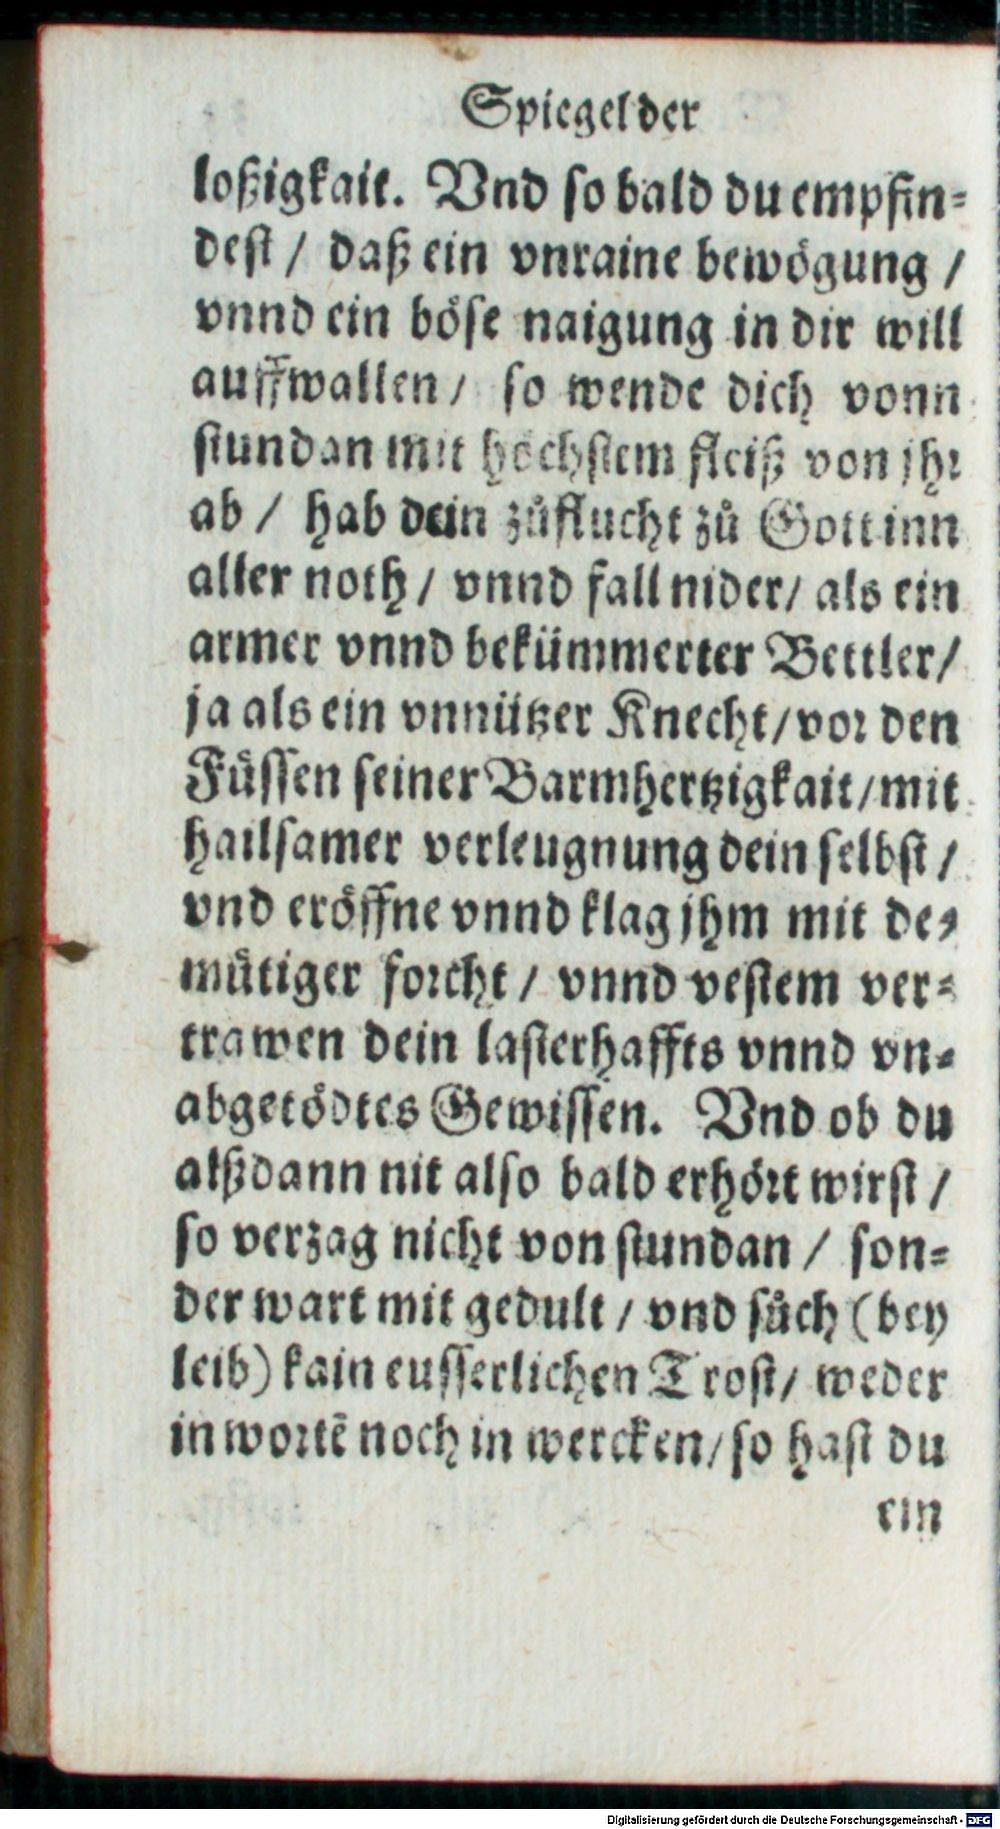 Spiegel der
loßigkait. Vnd so bald du empfin-
dest / daß ein vnraine bewögung /
vnnd ein böse naigung in dir will
auffwallen / so wende dich vonn
stundan mit höchstem fleiß von jhr
ab / hab dein zůflucht zů Gott inn
aller noth / vnnd fall nider / als ein
armer vnnd bekümmerter Bettler /
ja als ein vnnützer Knecht / vor den
Füssen seiner Barmhertzigkait / mit
hailsamer verleugnung dein selbst /
vnd eröffne vnnd klag jhm mit de-
mütiger forcht / vnnd vestem ver-
trawen dein lasterhaffts vnnd vn-
abgetödtes Gewissen. Vnd ob du
alßdann nit also bald erhört wirst /
so verzag nicht von stundan / son-
der wart mit gedult / vnd sůch (bey
leib) kain eusserlichen Trost / weder
in wortẽ noch in wercken / so hast du
ein
Digitalisierung gefördert durch die Deutsche Forschungsgemeinschaft - DFG